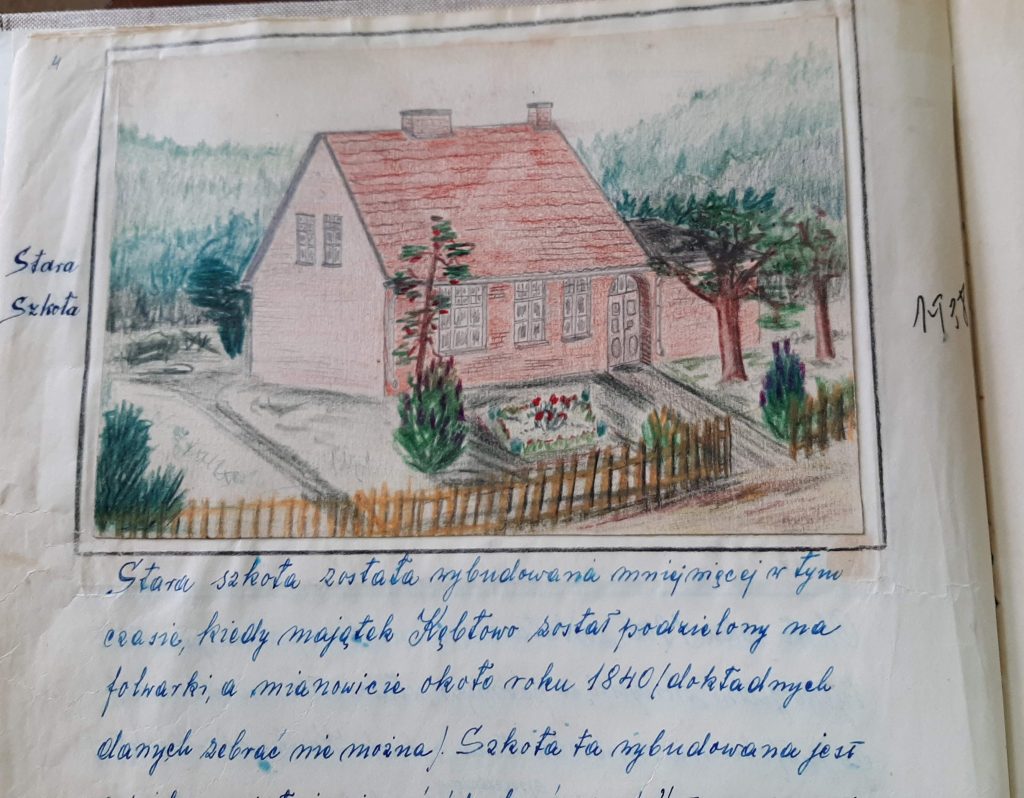 4
Stara
Szkoła
Stara szkoła została wybudowana mniejwięcej w tym
czasie, kiedy majątek Kębłowo został podzielony na
folwarki, a mianowicie około roku 1840/dokładnych
danych zebrać nie można/. Szkoła ta wybudowana jest